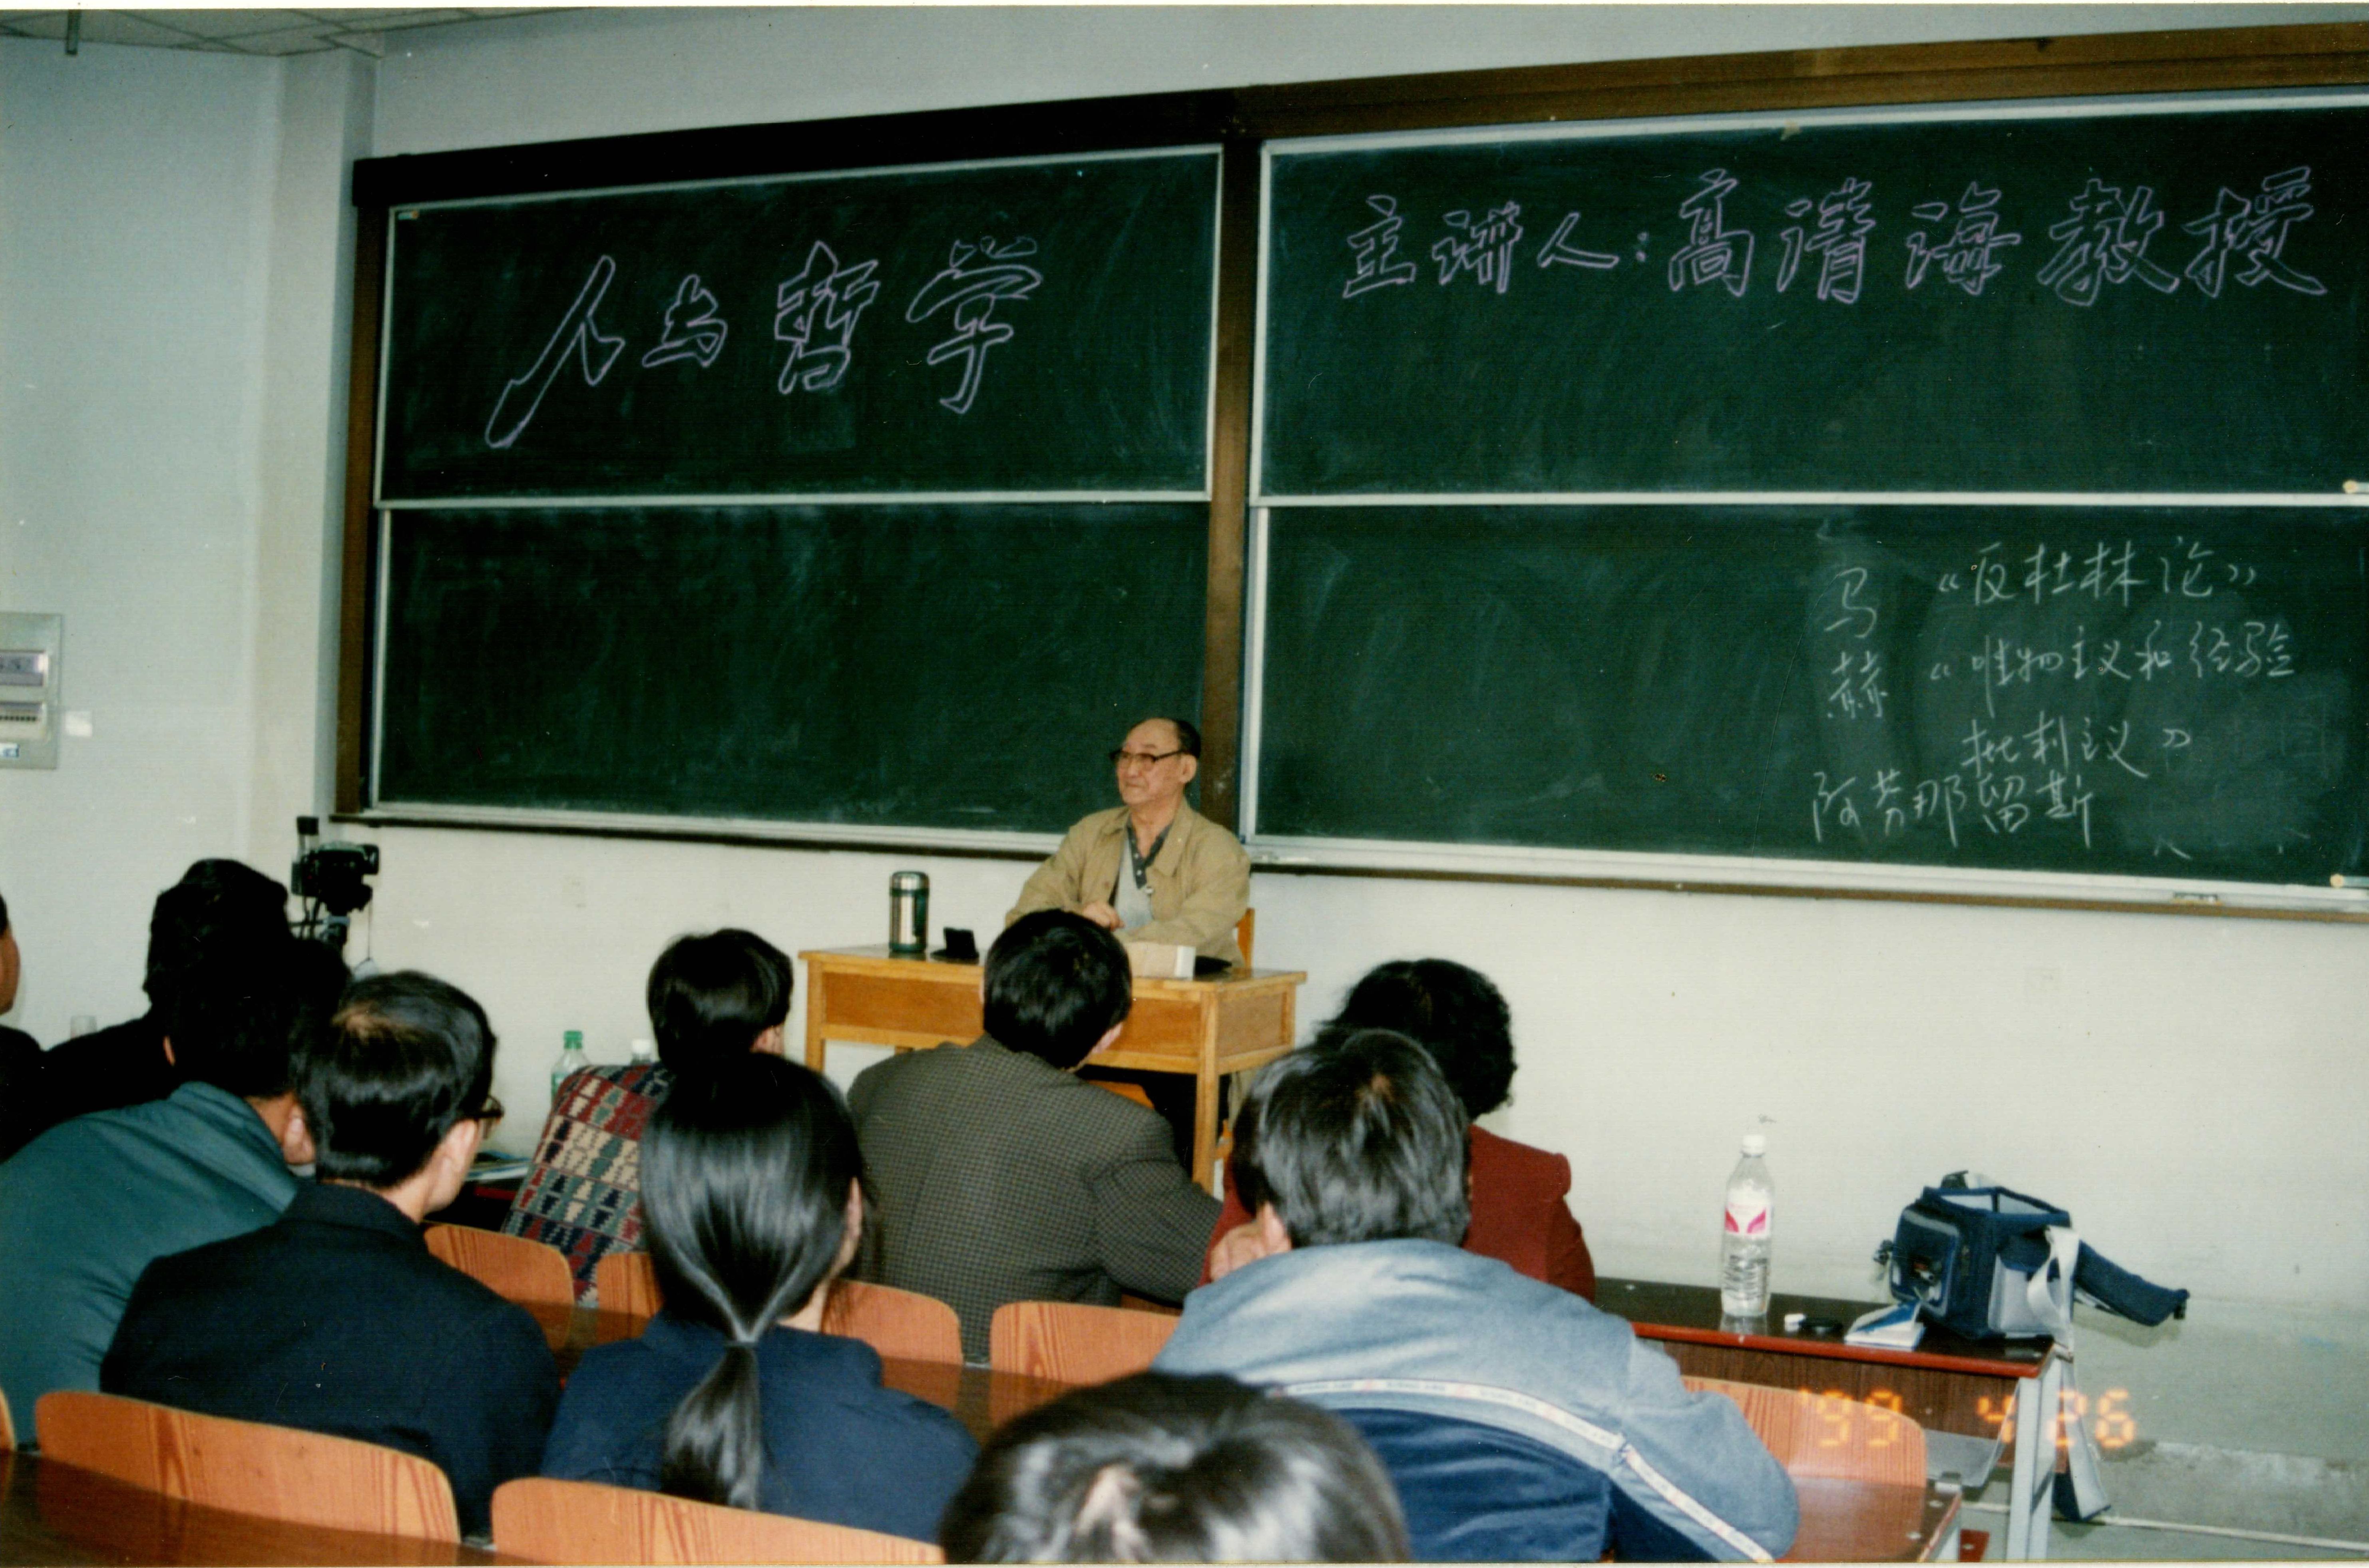 人与哲学
主讲人:高清海教授
马 《反杜林论》
赫 《唯物主义和经验
批判主义》
阿芬那留斯
'99 4 26